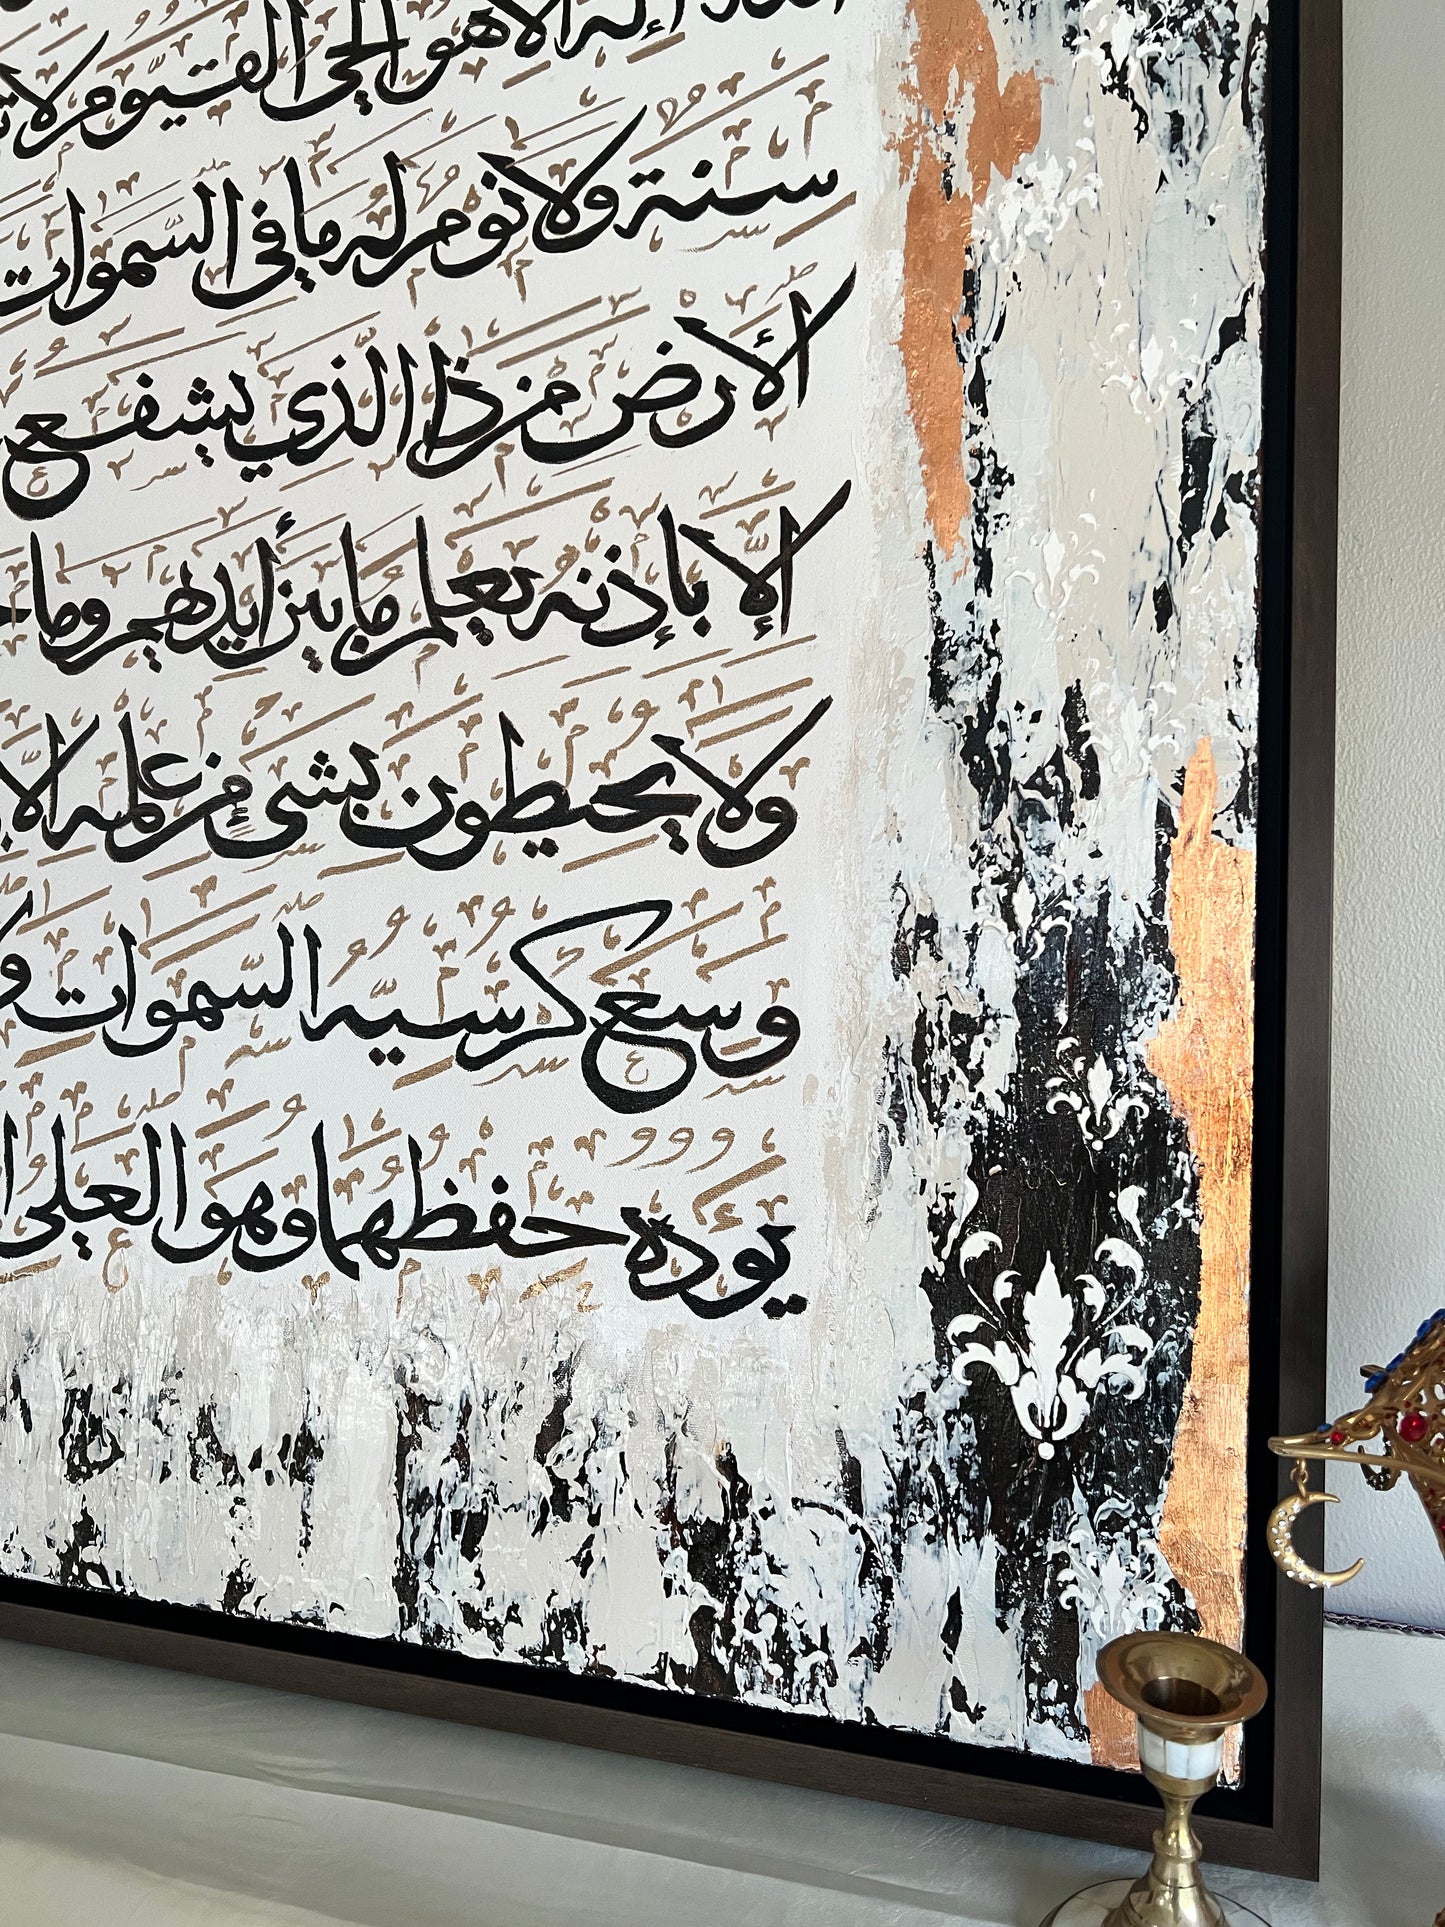 إله إلا هو الحي القيوم لا
سنة ولا نوم له ما في السموات
الأرض من ذا الذي يشفع
إلا بإذنه يعلم ما بين أيديهم وما
ولا يحيطون بشيء من علمه إلا
وسع كرسيه السموات و
يوده حفظهما وهو العلي